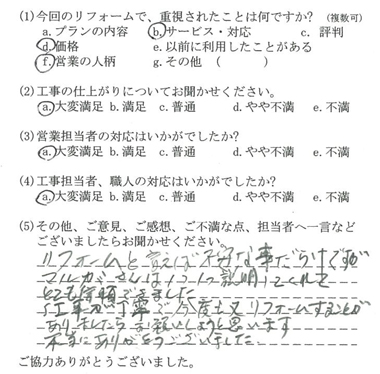 (1)今回のリフォームで、重視されたことは何ですか? (複数可)
a.プランの内容 b.サービス・対応 c. 評判
d.価格 e.以前に利用したことがある
f.営業の人柄 g.その他 ( )
(2)工事の仕上がりについてお聞かせください。
a.大変満足 b.満足 c.普通 d.やや不満 e.不満
(3)営業担当者の対応はいかがでしたか?
a.大変満足 b.満足 c.普通 d.やや不満 e.不満
(4)工事担当者、職人の対応はいかがでしたか?
a.大変満足 b.満足 c.普通 d.やや不満 e.不満
(5)その他、ご意見、ご感想、ご不満な点、担当者へ一言など
ございましたらお聞かせください。
リフォームと言えば不安な事だらけですが
さんは1つ1つ説明してくれて
とても信頼できました
工事が丁寧で今度又リフォームすることが
ありましたらお願いしようと思います
本当にありがとうございました
ご協力ありがとうございました。